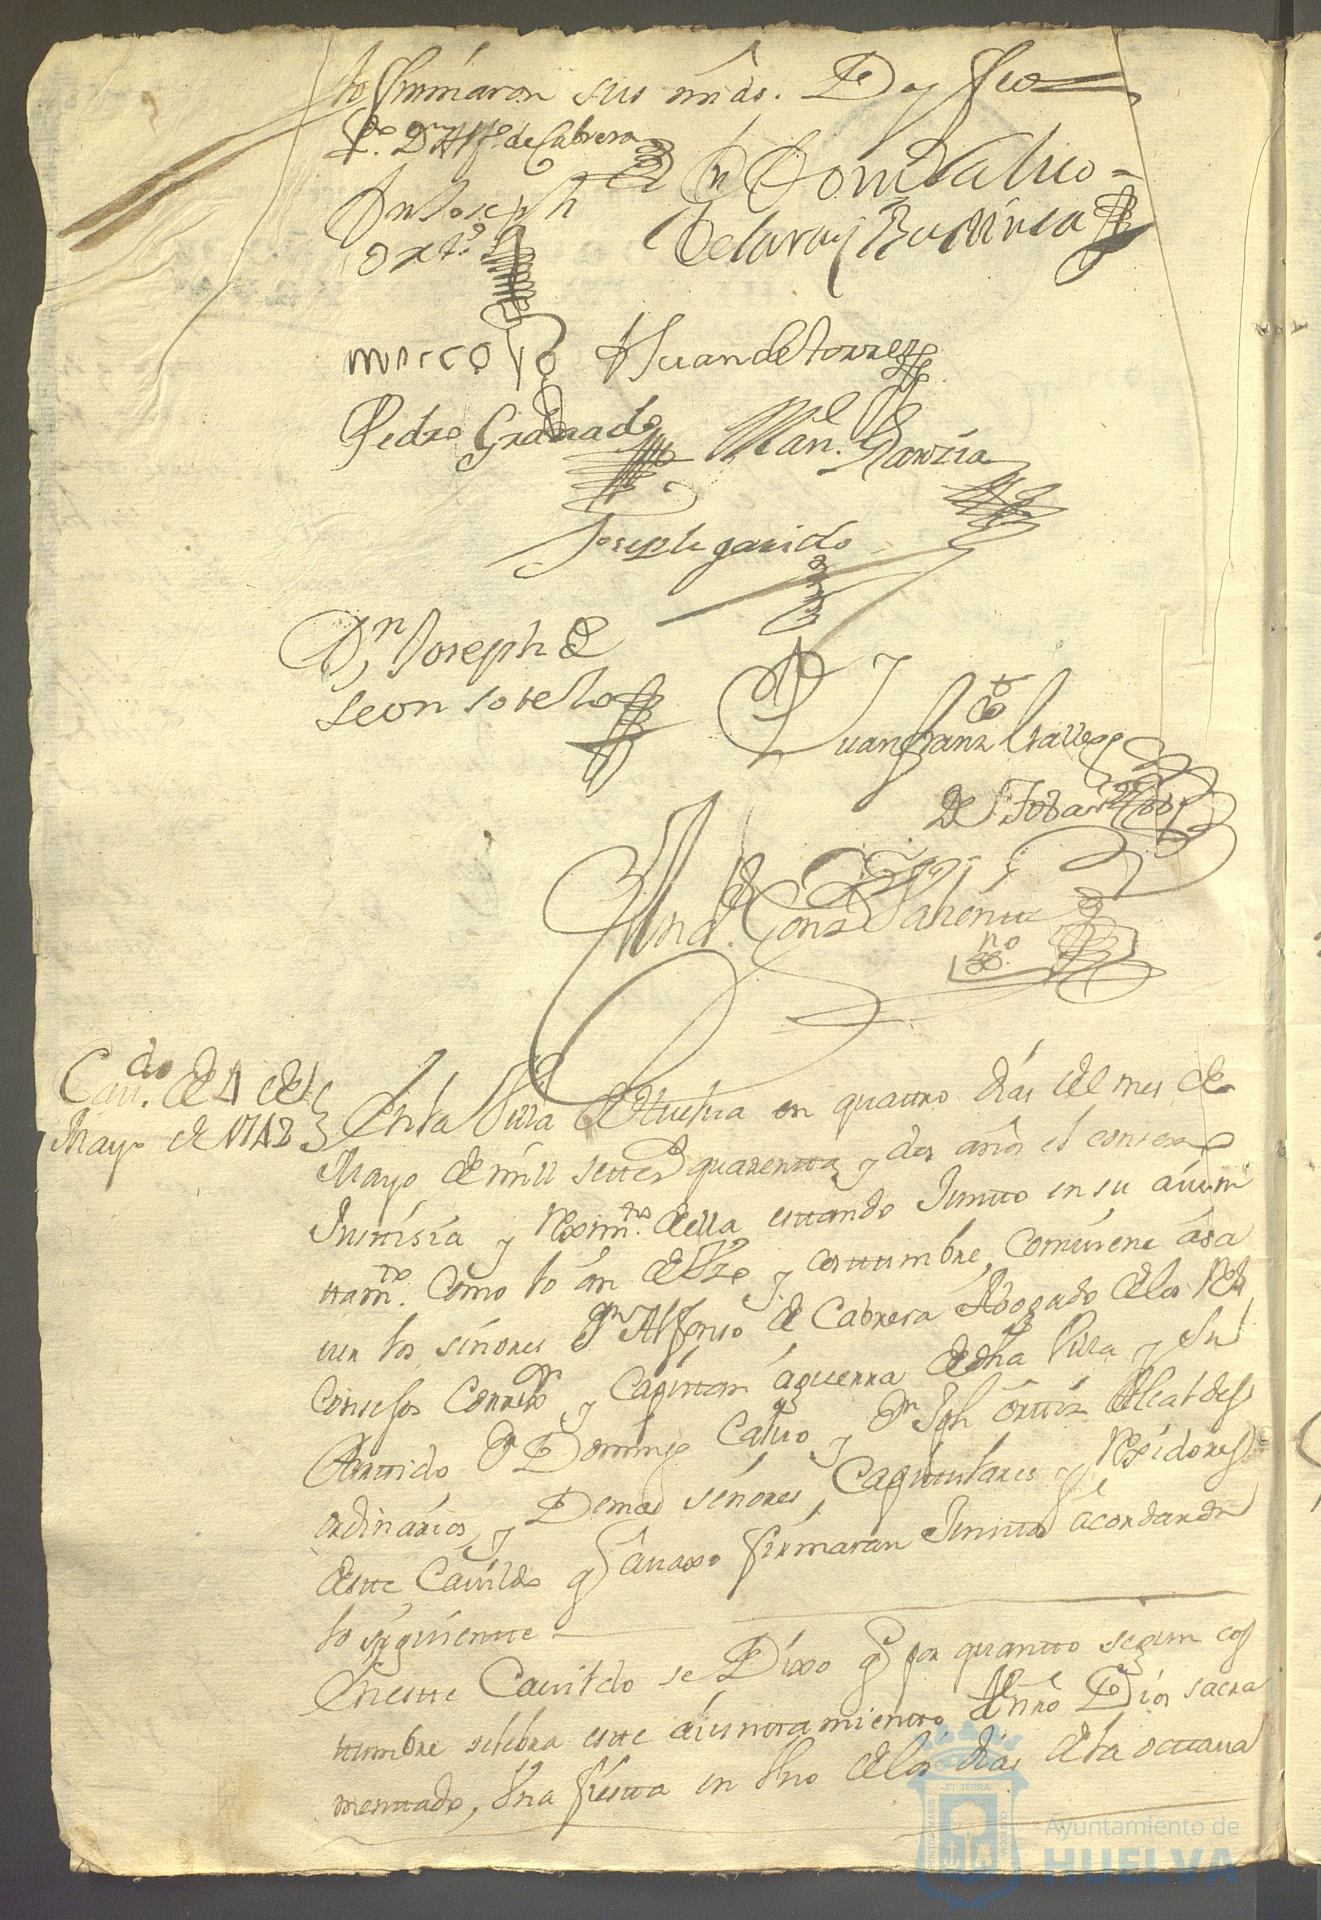 lo firmaron sus mrds. Doy fee
Dn Alfo. de Cabrera
Dn Joseph
ortz
marcos
Juan de torres
Pedro Granado
Man. Garzia
Joseph garrido
Dn Joseph de
Leon sotelo
Juan Franco Gallego
De Tobar
And. Gonz
Cavdo. de 4 de
Mayo de 1742
En la Villa de Huelva en quattro dias del mes de
Mayo de mill settes quarentta y dos años el consexo
Justtisia y Reximto. della esttando Juntto en su aiun
ttamto. como lo an de Uzo y costtumbre, combiene a sa
ver los señores Dn Alfonso de Cabrera Abogado de los Rs
Consejos Correxor y Capittan aguerra de dha Villa y Su
Parttido Dn Domingo Calvo y Dn Jph orttiz Alcaldes
ordinarios, y Demas señores Capittulares y Rexidores
destte Cavildo q avaxo firmaran Junttos acordaron
lo siguientte
En estte Cavildo se Dixo q por quantto segun cos
tumbre selebra estte aiunttamientto A nro Dios sacra
menttado, Una fiestta en Uno de los dias de la octtava
Ayuntamiento de
HUELVA